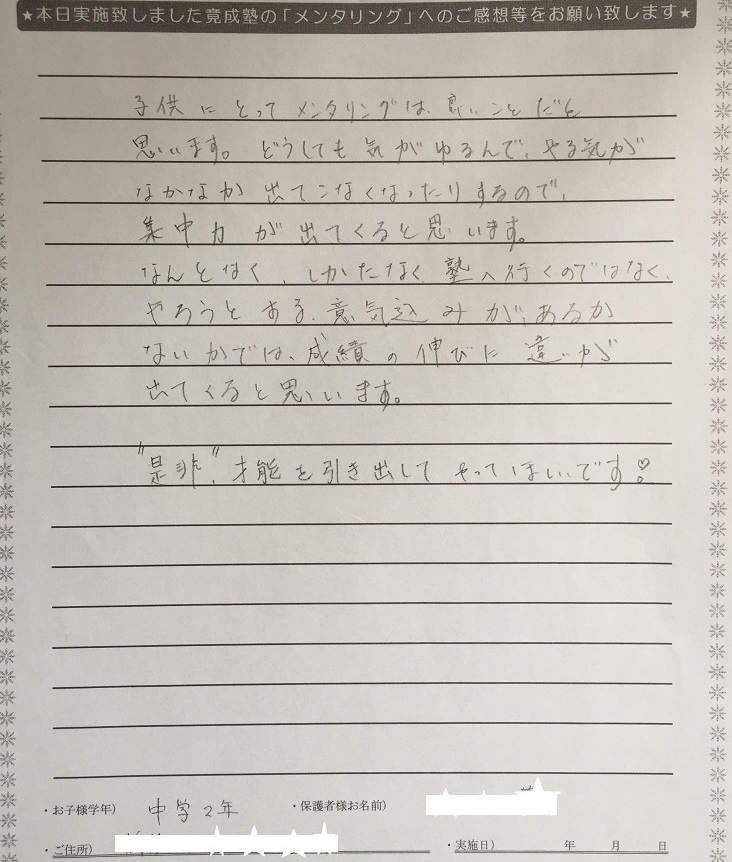 ★本日実施致しました竟成塾の「メンタリング」へのご感想等をお願い致します★
子供にとってメンタリングは、良いことだと
思います。どうしても気がゆるんで、やる気が
なかなか出てこなくなったりするので、
集中力が出てくると思います。
なんとなく、しかたなく塾へ行くのではなく、
やろうとする、意気込みが、あるか
ないかでは、成績の伸びに違いが
出てくると思います。
"是非"、才能を引き出してやってほしいです♡
・お子様学年) 中学2年 ・保護者様お名前)
・ご住所) ・実施日) 年 月 日